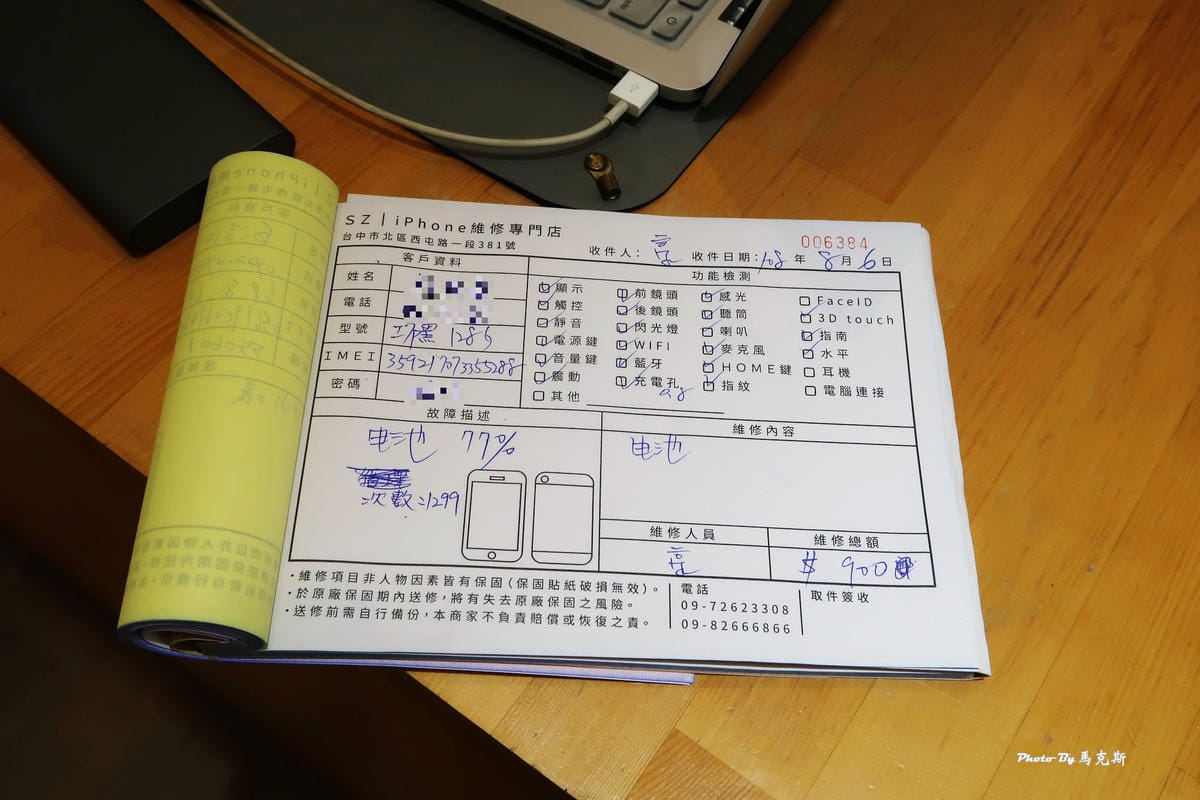 SZ|iPhone維修專門店
台中市北區西屯路一段381號
006384
收件人: 收件日期: 108 年 8 月 6 日
客戶資料
姓名
電話
型號 128
IMEI
密碼
功能檢測
顯示 前鏡頭 感光 FaceID
觸控 後鏡頭 聽筒 3D touch
靜音 閃光燈 喇叭 指南
電源鍵 WIFI 麥克風 水平
音量鍵 藍牙 HOME鍵 耳機
震動 充電孔 指紋 電腦連接
其他
故障描述
电池 77%
次數:1299
維修內容
电池
維修人員
維修總額
$ 900
・維修項目非人物因素皆有保固(保固貼紙破損無效)。
・於原廠保固期內送修,將有失去原廠保固之風險。
・送修前需自行備份,本商家不負責賠償或恢復之責。
電話
09-72623308
09-82666866
取件簽收
Photo By 馬克斯